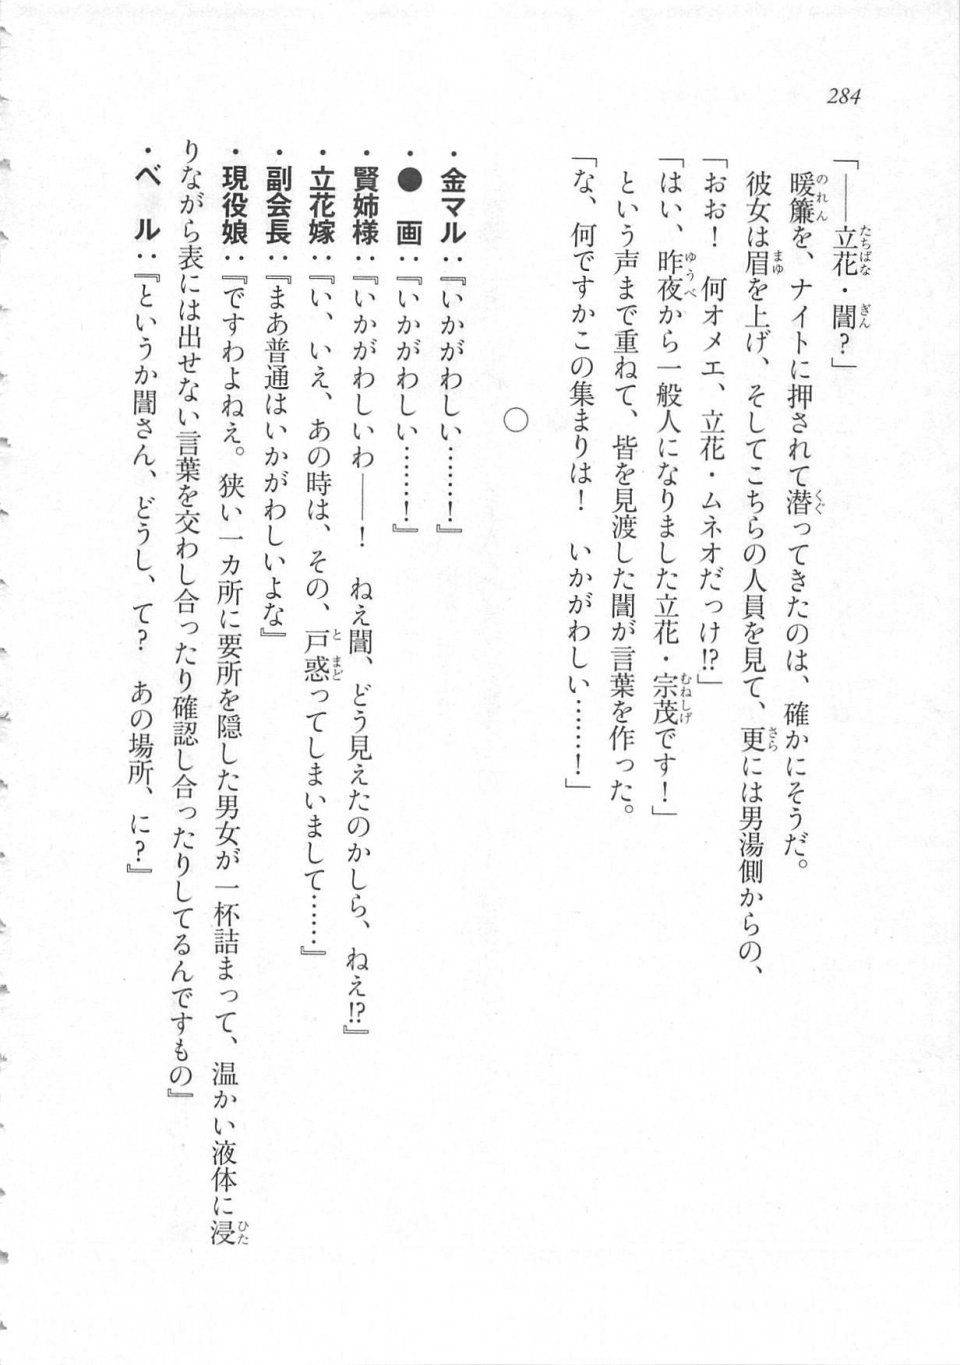 284
「――立花・誾？」
暖簾を、ナイトに押されて潜ってきたのは、確かにそうだ。
彼女は眉を上げ、そしてこちらの人員を見て、更には男湯側からの、
「おお！　何オメエ、立花・ムネオだっけ!?」
「はい、昨夜から一般人になりました立花・宗茂です！」
という声まで重ねて、皆を見渡した誾が言葉を作った。
「な、何ですかこの集まりは！　いかがわしい……！」
○
・金マル：『いかがわしい……！』
・●　画：『いかがわしい……！』
・賢姉様：『いかがわしいわ――！　ねえ誾、どう見えたのかしら、ねえ!?』
・立花嫁：『い、いえ、あの時は、その、戸惑ってしまいまして……』
・副会長：『まあ普通はいかがわしいよな』
・現役娘：『ですわよねえ。狭い一カ所に要所を隠した男女が一杯詰まって、温かい液体に浸
りながら表には出せない言葉を交わし合ったり確認し合ったりしてるんですもの』
・ベ　ル：『というか誾さん、どうし、て？　あの場所、に？』